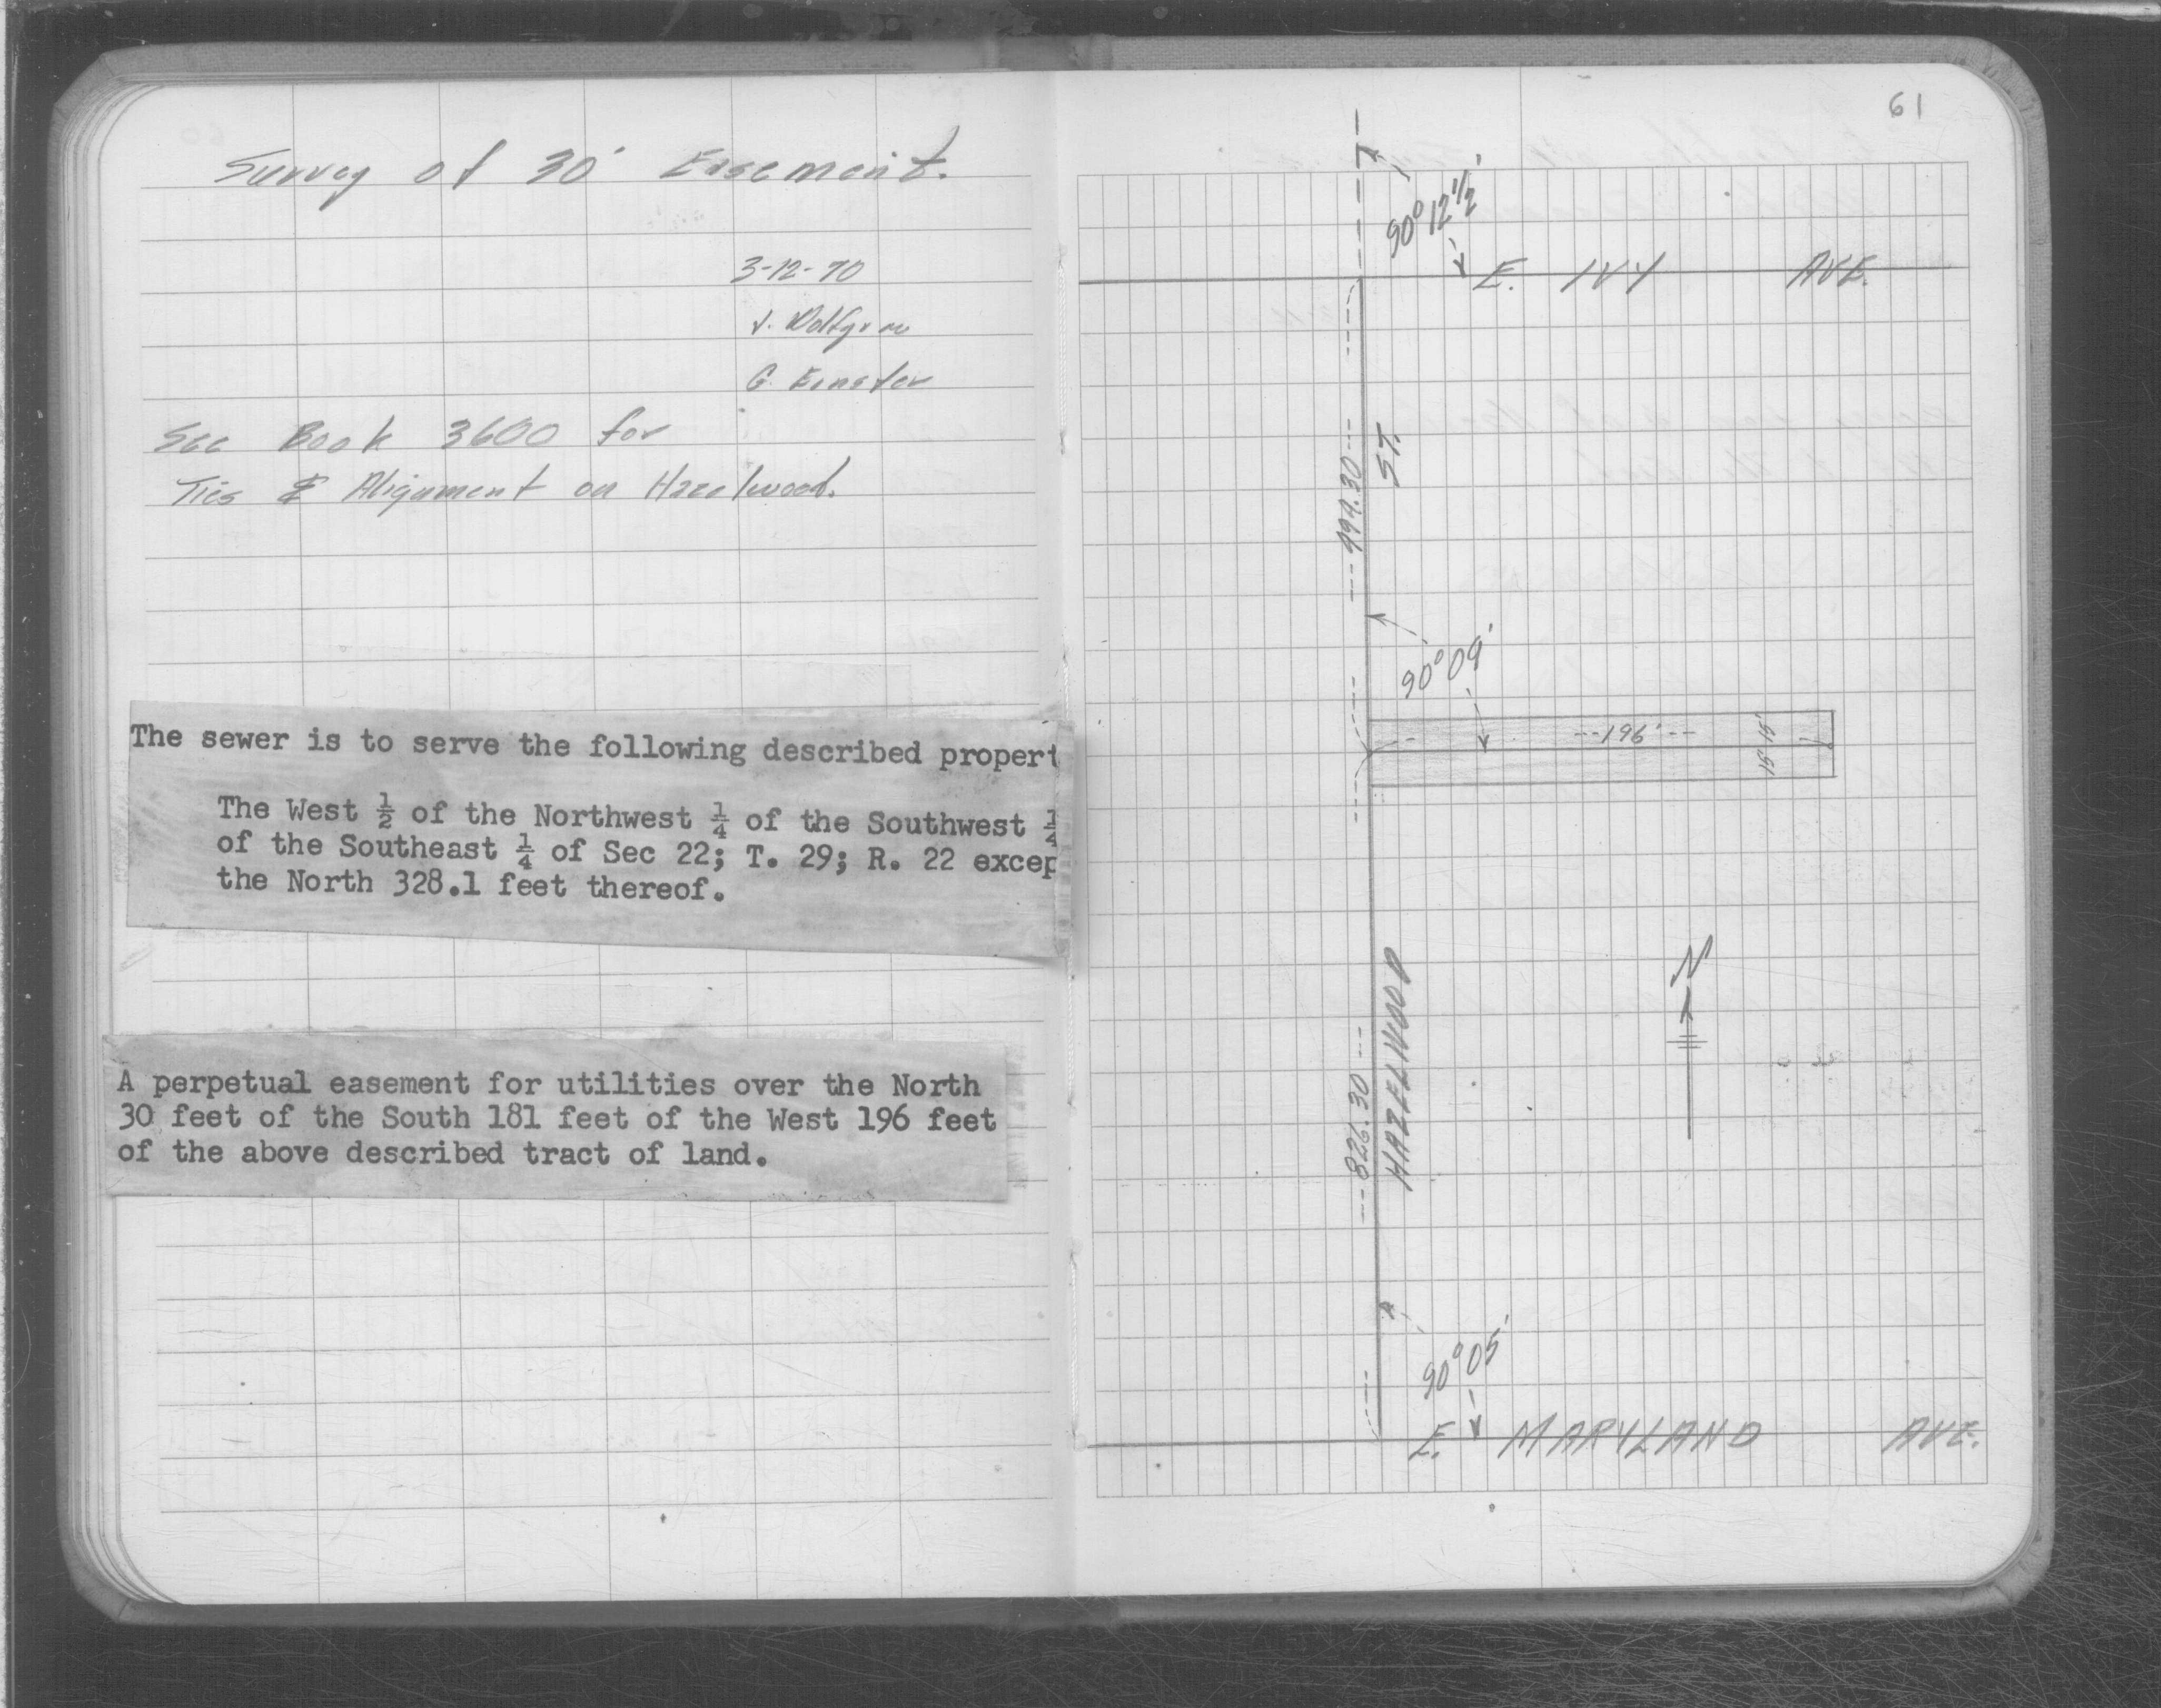 Survey of 30' Easement.
3-12-70
J. Wolfgram
G. Ernster
See Book 3600 for
Ties & Alignment on Hazelwood.
The sewer is to serve the following described propert
The West ½ of the Northwest ¼ of the Southwest ¼
of the Southeast ¼ of Sec 22; T. 29; R. 22 excep
the North 328.1 feet thereof.
A perpetual easement for utilities over the North
30 feet of the South 181 feet of the West 196 feet
of the above described tract of land.
61
90° 12 1/2'
E. IVY AVE.
ST.
90° 09'
196'
15' 15'
N
HAZELWOOD
826.30
90° 05'
E. MARYLAND AVE.